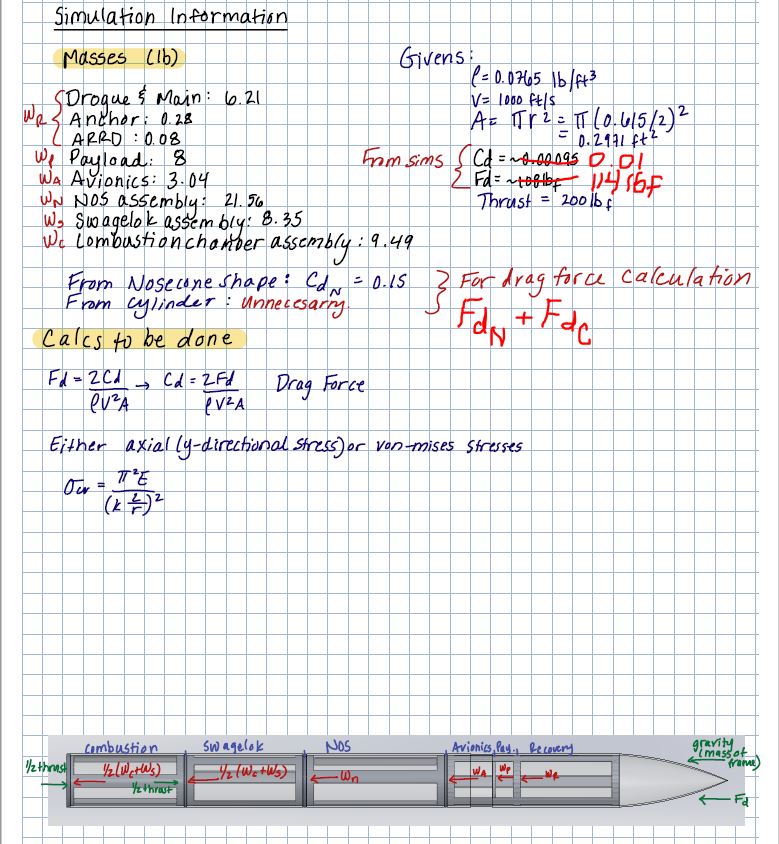 Simulation Information
Masses (lb)
Drogue & Main: 6.21
WR { Anchor: 0.28
ARRD : 0.08
Wp Payload: 8
WA Avionics: 3.04
WN NOS assembly: 21.56
Ws Swagelok assembly: 8.35
Wc Combustion chamber assembly: 9.49
Givens:
ρ = 0.0765 lb/ft³
V = 1000 ft/s
A = πr² = π(0.615/2)²
= 0.2971 ft²
From sims { Cd = ~0.00095 0.01
Fd = ~108lbf 114 lbf
Thrust = 200 lbf
From Nosecone shape: CdN = 0.15
From cylinder : Unnecesarry.
} For drag force calculation
FdN + Fdc
Calcs to be done
Fd = 2Cd/ρV²A → Cd = 2Fd/ρV²A Drag Force
Either axial (y-directional stress) or von-mises stresses
σcr = π²E/(k l/r)²
Combustion Swagelok NOS Avionics, Pay., Recovery
gravity
(mass of
frame)
1/2 thrust 1/2 (Wc+Ws) 1/2 thrust 1/2 (Wc+Ws) Wn WA WP WR
Fd